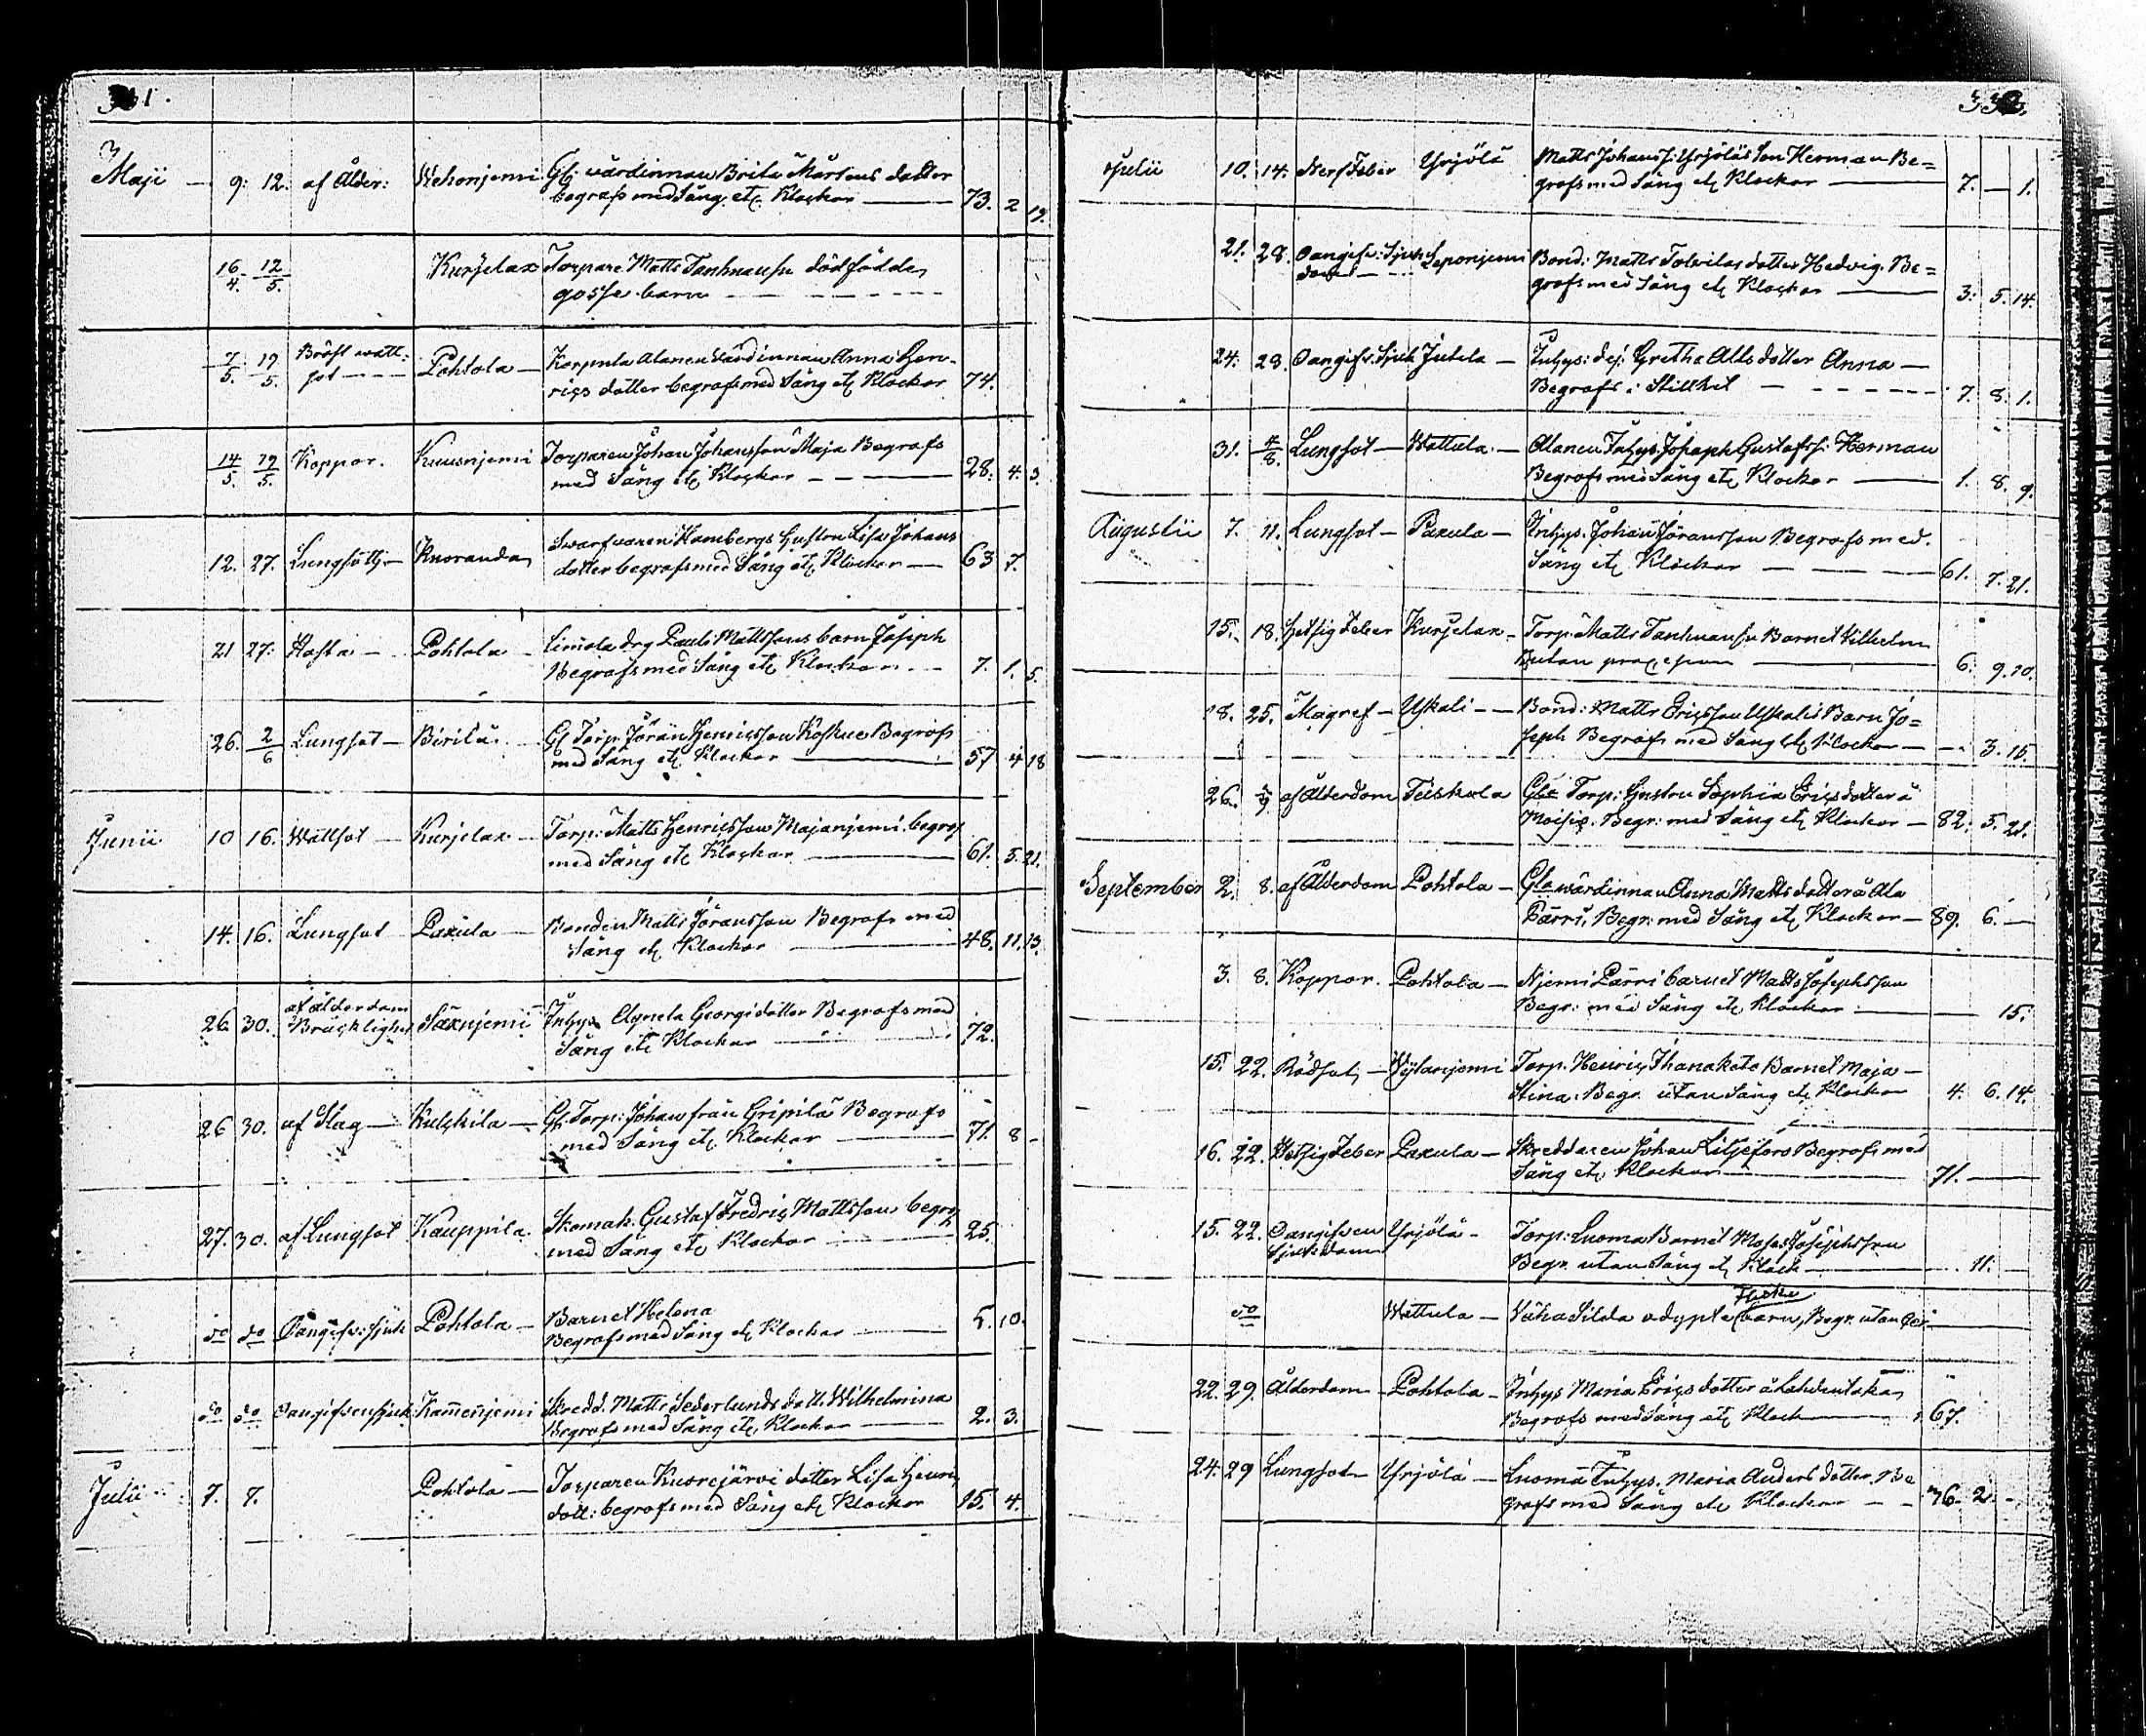 Maji — 9. 12. af Ålder: Wehonjemi Gl: wärdinnan Brita Mårtens dotter
begrafs med Sång etc Klockor — 73. 2 19.
16/4. 12/5. Kurjelax Torpare Matts Tanhuansu dödfödde
gosse barn
7/5. 19/5. Bröst watt-
sot — Pohtola — Korpula Alanen Wärdinnan Anna Hen-
rics dotter begrafs med Sång etc Klockor 74.
14/5. 19/5. Koppor. Kuusnjemi Torparen Johan Johansson Maja Begrafs
med Sång etc Klockor — 28. 4. 3.
12. 27. Lungsot — Knoranda Swarfwaren Hambergs Hustru Lisa Johans
dotter begrafs med Sång etc Klockor — 63 7.
21 27. Hosta — Pohtola — Pauli Mattssons barn Joseph
Begrafs med Sång etc Klockor — 7. 1. 5.
26. 2/6 Lungsot — Birilä — Gl Torp. Jöran Henricsson Koskue Begrafs
med Sång etc Klockor — 57 4 18
Junii 10 16. Wattsot — Kurjelax — Torp: Matts Henricsson Majanjemi begraf
med Sång etc Klockor — 61. 5. 21.
14. 16. Lungsot Paxula — Bonden Matts Jöransson Begrafs med
Sång etc Klockor — 48. 11. 13.
26 30. af ålderdom
Bräcklighet Säxnjemi Inhys Agneta Georgsdotter Begrafs med
Sång etc Klockor — 72.
26 30. af Slag — Kulckila — Gl. Torp: Johan från Gripilä Begrafs
med Sång etc Klockor — 71. 8 —
27. 30. af Lungsot Kauppila. Skomak. Gustaf Fredric Mattsson begraf
med Sång etc Klockor — 25.
do do Oangifv: sjuk Pohtola — Barnet Helena
Begrafs med Sång etc Klockor — 5. 10.
do do Oangifven sjuk Kamenjemi Skredd. Matts Sederlunds dott. Wilhelmina
Begrafs med Sång etc Klockor — 2. 3.
Julii 7. 7. Pohtola — Torparen Kuorejärvi dotter Lisa Henric
dott: begrafs med Sång etc Klockor 15. 4.
Julii 10. 14. Nerf Feber Yrjölä Matts Johanss: Yrjöläs Son Herman Be=
grafs med Sång etc Klockor — 7. — 1.
21. 28. Oangifv: Sjuk-
dom — Leponjemi Bond: Matts Tolvilas dotter Hedvig. Be=
grafs med Sång etc Klockor — 3. 5. 14.
24. 28. Oangifv. Sjuk Jutila — Inhys: dej: Gretha Alls dotter Anna —
Begrafs i Stillhet — 7. 8. 1.
31. 4/8. Lungsot — Wattula — Alanen Inhys. Joseph Gustafss: Herman
Begrafs med Sång etc Klockor — 1. 8. 9.
Augustii 7. 11. Lungsot — Paxula — Inhys. Johan Jöransson Begrafs med
Sång etc Klockor — 61. 7. 21.
15. 18. Hetsig Feber Kurjelax — Torp. Matts Tanhuansu Barnet Vilhelm
utan — 6. 9. 10.
18. 25. Magref — Uskali — Bond: Matts Ericsson Uskalis Barn Jo=
seph Begrafs med Sång etc Klockor — 3. 15.
26. af Ålderdom Teiskola Gla Torp: Hustru Sophia Ericsdotter å
Moisio. Begr: med Sång etc Klockor — 82. 5. 21.
September 2. 8. af Ålderdom Pohtola — Gla wärdinnan Anna Mattsdotter å Ala
Pärri, Begr: med Sång etc Klockor — 89. 6. —
3. 8. Koppor. Pohtola — Njemi Pärri barnet Matts Josephsson
Begr: med Sång etc Klockor — 15.
15. 22. Rödsot — Wylänjemi Torp. Henric Ihanakato Barnet Maja —
Stina. Begr. utan Sång etc Klockor 4. 6. 14.
16. 22. Hetsig Feber Paxula — Skreddaren Johan Liljefors Begrafs med
Sång etc Klockor — 71. —
15. 22. Oangifven
sjukdom Yrjölä — Torp: Luoma Barnet Moses Josephsson
Begr. utan Sång etc Klock — 11. —
do Wattula — Vähä Silda odöpte barn, Begr. utan
22. 29. Ålderdom — Pohtola — Inhys Maria Ericsdotter å Lahdentaka
Begrafs med Sång etc Klock — 67.
24. 29 Lungsot — Yrjölä — Luoma Inhys. Maria Anders dotter. Be
grafs med Sång etc Klockor — 76. 2. —